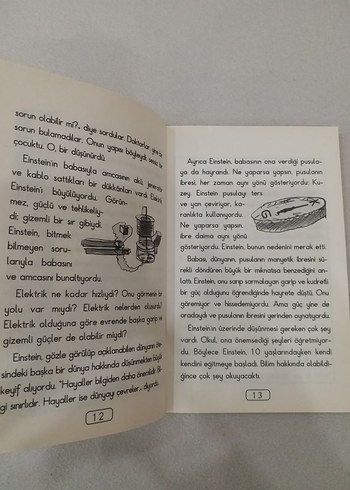 sorun olabilir mi?, diye sordular. Doktorlar, yine bir
sorun bulamadılar. Onun yapısı böyleydi, sessiz bir
çocuktu. O, bir düşünürdü.
Einstein'in babasıyla amcasının akü, jeneratör
ve kablo sattıkları bir dükkânları vardı. Elektrik
Einstein'ı büyülüyordu. Görün-
mez, güçlü ve tehlikeliy-
di; gizemli bir sır gibiydi.
Einstein, bitmek
bilmeyen soru-
larıyla babasını
ve amcasını bunaltıyordu.
Elektrik ne kadar hızlıydı? Onu görmenin bir
yolu var mıydı? Elektrik nelerden oluşurdu?
Elektrik olduğuna göre evrende başka garip ve
gizemli güçler de olabilir miydi?
Einstein, gözle görülüp açıklanabilen dünyanın öte-
sindeki başka bir dünya hakkında düşünmekten büyük
keyif alıyordu. "Hayaller bilgiden daha önemlidir. Bil-
gi sınırlıdır. Hayaller ise dünyayı çevreler, diyordu.
12
Ayrıca Einstein, babasının ona verdiği pusula-
ya da hayrandı. Ne yaparsa yapsın, pusulanın
ibresi, her zaman aynı yönü gösteriyordu: Ku-
zey. Einstein pusulayı ters
ve yan çeviriyor, ka-
ranlıkta kullanıyordu.
Ne yaparsa yapsın,
ibre daima aynı yönü
gösteriyordu. Einstein, bunun nedenini merak etti.
Babası, dünyanın, pusulaların manyetik ibresini sü-
rekli döndüren büyük bir mıknatısa benzediğini an-
lattı. Einstein, onu sarıp sarmalayan garip ve kudretli
bir güç olduğunu öğrendiğinde hayrete düştü. Onu
göremiyor ve hissedemiyordu. Ama güç yine de
oradaydı ve pusulaların ibresini yerinden oynatıyordu.
Einstein'ın üzerinde düşünmesi gereken çok şey
vardı. Okul, ona önemsediği şeyleri öğretmiyor-
du. Böylece Einstein, 10 yaşlarındayken kendi
kendini eğitmeye başladı. Bilim hakkında olabildi-
ğince çok şey okuyacaktı.
13